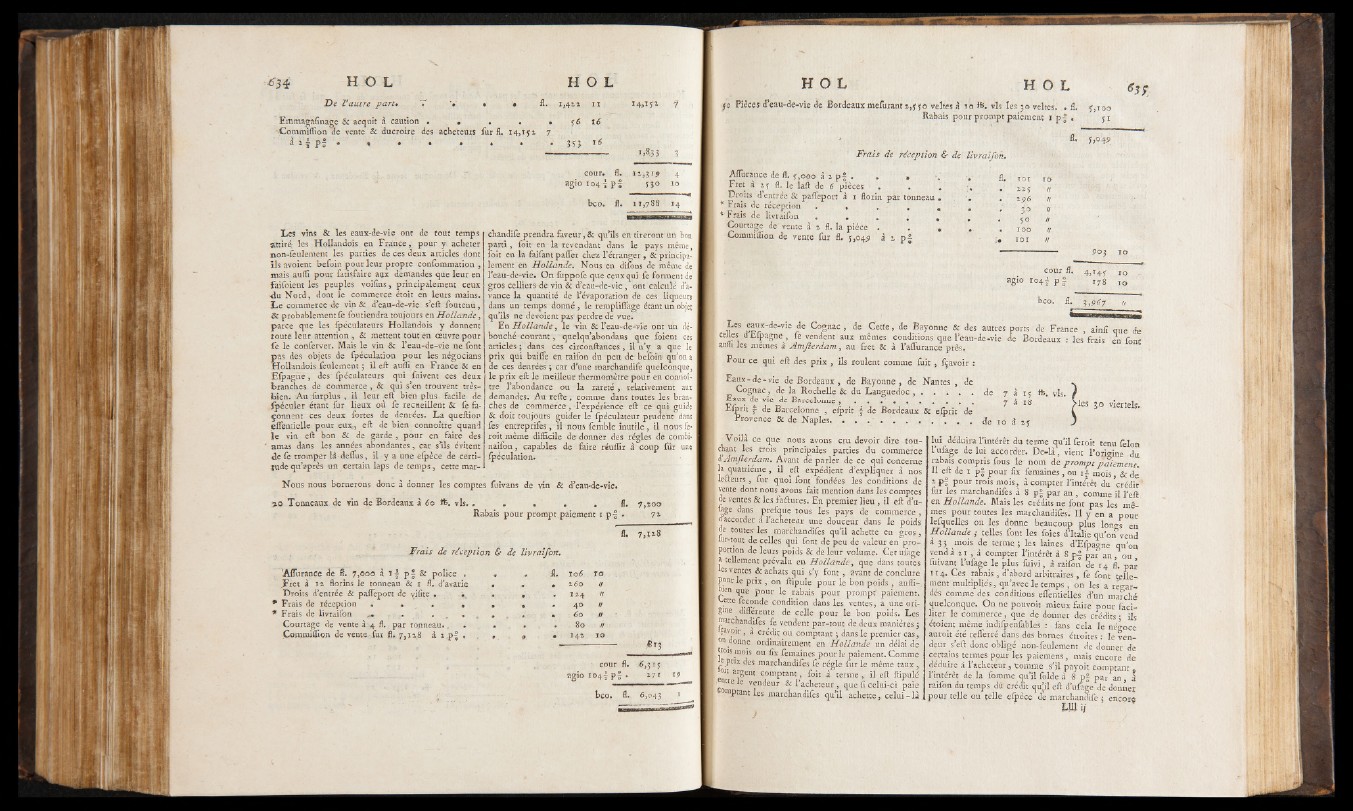 634 HOL HOL
De l'autre part. fl. 1,422 11 14,152 7
Emmagasinage & acquit à caution . . . . . 56 16
Commission de vente & ducroire des acheteurs sur fl. 14,152 7
à 2 ½ p° . . . . . . . . 353 16
1,833 3
cour. fl. 12,319 4
agio 104 ½ p° 530 10
bco. fl. 11,788 14
Les vins & les eaux-de-vie ont de tout temps
attiré les Hollandois en France, pour y acheter
non-seulement les parties de ces deux articles dont
ils avoient besoin pour leur propre consommation,
mais aussi pour satisfaire aux demandes que leur en
faisoient les peuples voisins, principalement ceux
du Nord, dont le commerce étoit en leurs mains.
Le commerce de vin & d'eau-de-vie s'est soutenu,
& probablement se soutiendra toujours en Hollande,
parce que les spéculateurs Hollandois y donnent
toute leur attention, & mettent tout en œuvre pour
se le conserver. Mais le vin & l'eau-de-vie ne sont
pas des objets de spéculation pour les négocians
Hollandois seulement; il est aussi en France & en
Espagne, des spéculateurs qui suivent ces deux
branches de commerce, & qui s'en trouvent très-
bien. Au surplus, il leur est bien plus facile de
spéculer étant sur lieux où se recueillent & se fa-
çonnent ces deux sortes de denrées. La question
essentielle pour eux, est de bien connoître quand
le vin est bon & de garde, pour en faire des
amas dans les années abondantes, car s'ils évitent
de se tromper là dessus, il y a une espèce de certi-
tude qu'après un certain laps de temps, cette mar-
chandise prendra faveur, & qu'ils en tireront un bon
parti, soit en la revendant dans le pays même,
soit en la faisant passer chez l'étranger, & principa-
lement en Hollande. Nous en disons de même de
l'eau-de-vie. On suppose que ceux qui se forment de
gros celliers de vin & d'eau-de-vie, ont calculé d'a-
vance la quantité de l'évaporation de ces liqueurs
dans un temps donné, le remplissage étant un objet
qu'ils ne devoient pas perdre de vue.
En Hollande, le vin & l'eau-de-vie ont un dé-
bouché courant, quelqu'abondans que soient ces
articles; dans ces circonstances, il n'y a que le
prix qui baisse en raison du peu de besoin qu'on a
de ces denrées; car d'une marchandise quelconque,
le prix est le meilleur thermomètre pour en connoî-
tre l'abondance ou la rareté, relativement aux
demandes. Au reste, comme dans toutes les bran-
ches de commerce, l'expérience est ce qui guide
& doit toujours guider le spéculateur prudent dans
ses entreprises, il nous semble inutile, il nous se-
roit même difficile de donner des règles de combi-
naison, capables de faire réussir à coup sûr une
spéculation.
Nous nous bornerons donc à donner les comptes suivans de vin & d'eau-de-vie.
20 Tonneaux de vin de Bordeaux à 60 ℔. vls. . . . . . fl. 7,200
Rabais pour prompt paiement 1 p° . 72
fl. 7,128
Frais de réception & de livraison.
Assurance de fl. 7,000 à 1 ½ p° & police . . . fl. 106 10
Fret à 12 florins le tonneau & 1 fl. d'avarie . . . 260 "
Droits d'entrée & passeport de visite . . . . 124 "
* Frais de réception . . . . . . . 40 "
* Frais de livraison . . . . . . . 60 "
Courtage de vente à 4 fl. par tonneau . . . . 80 "
Commission de vente sur fl. 7,128 à 2 p° . . . 142 10
813
cour fl. 6,315
agio 104 ½ p° . 271 19
bco. fl. 6,043 1
HOL HOL 635
50 Pièces d'eau-de-vie de Bordeaux mesurant 2,550 veltes à 10 ℔. vls les 30 veltes. . fl. 5,100
Rabais pour prompt paiement 1 p° . 51
fl. 5,049
Frais de réception & de livraison.
Assurance de fl. 5,000 à 2 p° . . . . . fl. 101 10
Fret à 25 fl. le last de 6 pièces . . . . . 225 "
Droits d'entrée & passeport à 1 florin par tonneau . . . 296 "
* Frais de réception . . . . . . . 30 "
* Frais de livraison . . . . . . . 50 "
Courtage de vente à 2 fl. la pièce . . . . . 100 "
Commission de vente sur fl. 5,049 à 2 p° . 101 "
903 10
cour fl. 4,145 10
agio 104 ½ p° 178 10
bco. fl. 3,967 "
Les eaux-de-vie de Cognac, de Cette, de Bayonne & des autres ports de France, ainsi que de
celles d'Espagne, se vendent aux mêmes conditions que l'eau-de-vie de Bordeaux : les frais en sont
aussi les mêmes à Amsterdam, au fret & à l'assurance près.
Pour ce qui est des prix, ils roulent comme suit, sçavoir :
Eaux-de-vie de Bordeaux, de Bayonne, de Nantes, de
Cognac, de la Rochelle & du Languedoc, . . . . . de 7 à 15 ℔. vls.
Eaux de vie de Barcelonne, . . . . . . . . . . 7 à 18 les 30 viertels.
Esprit de Barcelonne, esprit de Bordeaux & esprit de
Provence & de Naples. . . . . . . . . . . de 10 à 25
Voilà ce que nous avons cru devoir dire tou-
chant les trois principales parties du commerce
d'Amsterdam. Avant de parler de ce qui concerne
la quatrième, il est expédient d'expliquer à nos
lecteurs, sur quoi sont fondées les conditions de
vente dont nous avons fait mention dans les comptes
de ventes & les factures. En premier lieu, il est d'u-
sage dans presque tous les pays de commerce,
d'accorder à l'acheteur une douceur dans le poids
de toutes les marchandises qu'il achette en gros,
sur-tout de celles qui sont de peu de valeur en pro-
portion de leurs poids & de leur volume. Cet usage
a tellement prévalu en Hollande, que dans toutes
les ventes & achats qui s'y font, avant de conclure
pour le prix, on stipule pour le bon poids, aussi-
bien que pour le rabais pour prompt paiement.
Cette seconde condition dans les ventes, a une ori-
gine différente de celle pour le bon poids. Les
marchandises se vendent par-tout de deux manières;
sçavoir, à crédit ou comptant; dans le premier cas,
on donne ordinairement en Hollande un délai de
trois mois ou six semaines pour le paiement. Comme
le prix des marchandises se règle sur le même taux,
soit argent comptant, soit à terme, il est stipulé
entre le vendeur & l'acheteur, que si celui-ci paie
comptant les marchandises qu'il achette, celui-là
lui déduira l'intérêt du terme qu'il seroit tenu selon
l'usage de lui accorder. De-là, vient l'origine du
rabais compris sous le nom de prompt paiement.
Il est de 1 p° pour six semaines, ou 1 ½ mois, & de
2 p° pour trois mois, à compter l'intérêt du crédit
sur les marchandises à 8 p° par an, comme il l'est
en Hollande. Mais les crédits ne sont pas les mê-
mes pour toutes les marchandises. Il y en a pour
lesquelles on les donne beaucoup plus longs en
Hollande; telles sont les soies d'Italie qu'on vend
à 33 mois de terme; les laines d'Espagne qu'on
vend à 21, à compter l'intérêt à 8 p° par an, ou,
suivant l'usage le plus suivi, à raison de 14 fl. par
114. Ces rabais, d'abord arbitraires, se sont telle-
ment multipliés, qu'avec le temps, on les a regar-
dés comme des conditions essentielles d'un marché
quelconque. On ne pouvoit mieux faire pour faci-
liter le commerce, que de donner des crédits; ils
étoient même indispensables : sans cela le négoce
auroit été resserré dans des bornes étroites : le ven-
deur s'est donc obligé non-seulement de donner de
certains termes pour les paiemens, mais encore de
déduire à l'acheteur, comme s'il payoit comptant,
l'intérêt de la somme qu'il solde à 8 p° par an, à
raison du temps du crédit qu'il est d'usage de donner
pour telle ou telle espèce de marchandise; encore
Llll ij